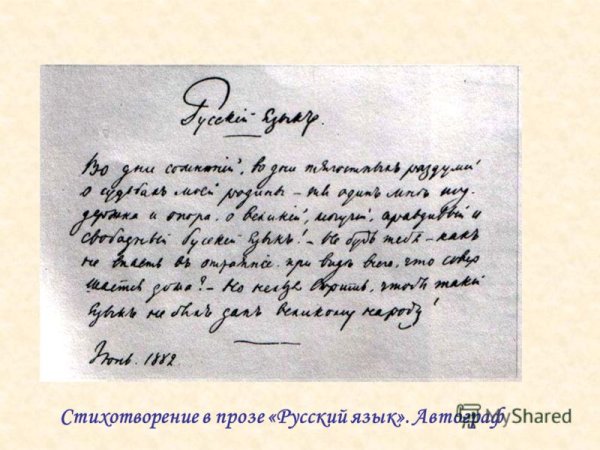 Русскій Языкъ.
Во дни сомнѣній, во дни тягостныхъ раздумій
о судьбахъ моей родины – ты одинъ мнѣ под-
держка и опора, о великій, могучій, правдивый и
свободный Русскій Языкъ! – Не будь тебя – какъ
не впасть въ отчаяніе при видѣ всего, что совер
шается дома? – Но нельзя вѣрить, чтобы такой
Языкъ не былъ данъ великому народу!
Июнь. 1882
Стихотворение в прозе «Русский язык». Автограф
MyShared